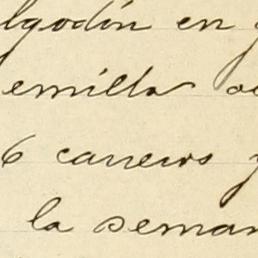 lgodón en
emilla
6 carreros y
la seman